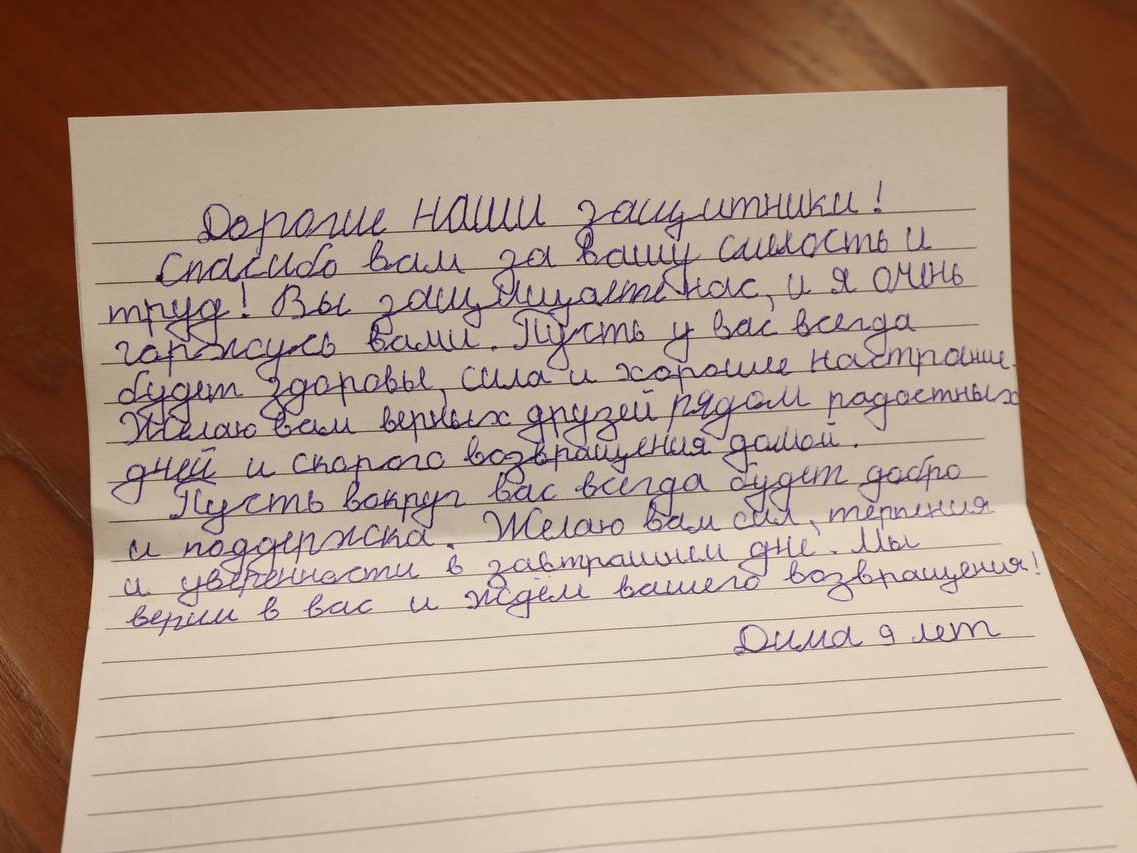 Дорогие наши защитники!
Спасибо вам за вашу смелость и
труд! Вы защищаете нас, и я очень
горжусь вами. Пусть у вас всегда
будет здоровье, сила и хорошее настроние.
Желаю вам верных друзей рядом радостных
дней и скорого возвращения домой.
Пусть вокруг вас всегда будет добро
и поддержка. Желаю вам сил, терпения
и уверенности в завтрашнем дне. Мы
верим в вас и ждём вашего возвращения!
Дима 9 лет